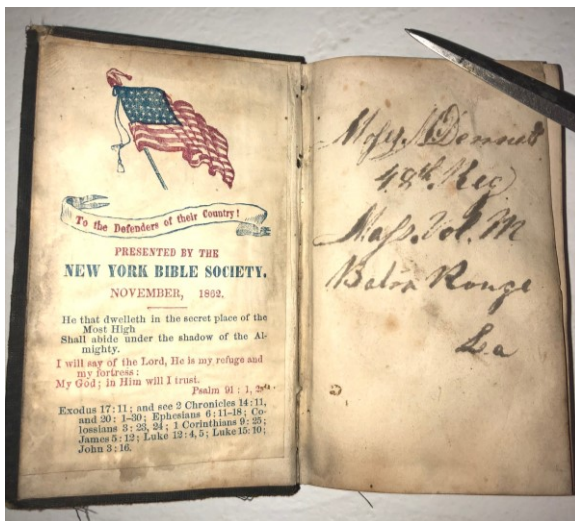 To the Defenders of their Country!
PRESENTED BY THE
NEW YORK BIBLE SOCIETY.
NOVEMBER, 1862.
He that dwelleth in the secret place of the
Most High
Shall abide under the shadow of the Al-
mighty.
I will say of the Lord, He is my refuge and
my fortress:
My God; in Him will I trust.
Psalm 91: 1, 2
Exodus 17:11; and see 2 Chronicles 14:11,
and 20: 1-30; Ephesians 6:11-18; Co-
lossians 3: 23, 24; 1 Corinthians 9: 25;
James 5: 12; Luke 12: 4, 5; Luke 15: 10;
John 3: 16.
48th Reg
Mass. Vol. M
Baton Rouge
La